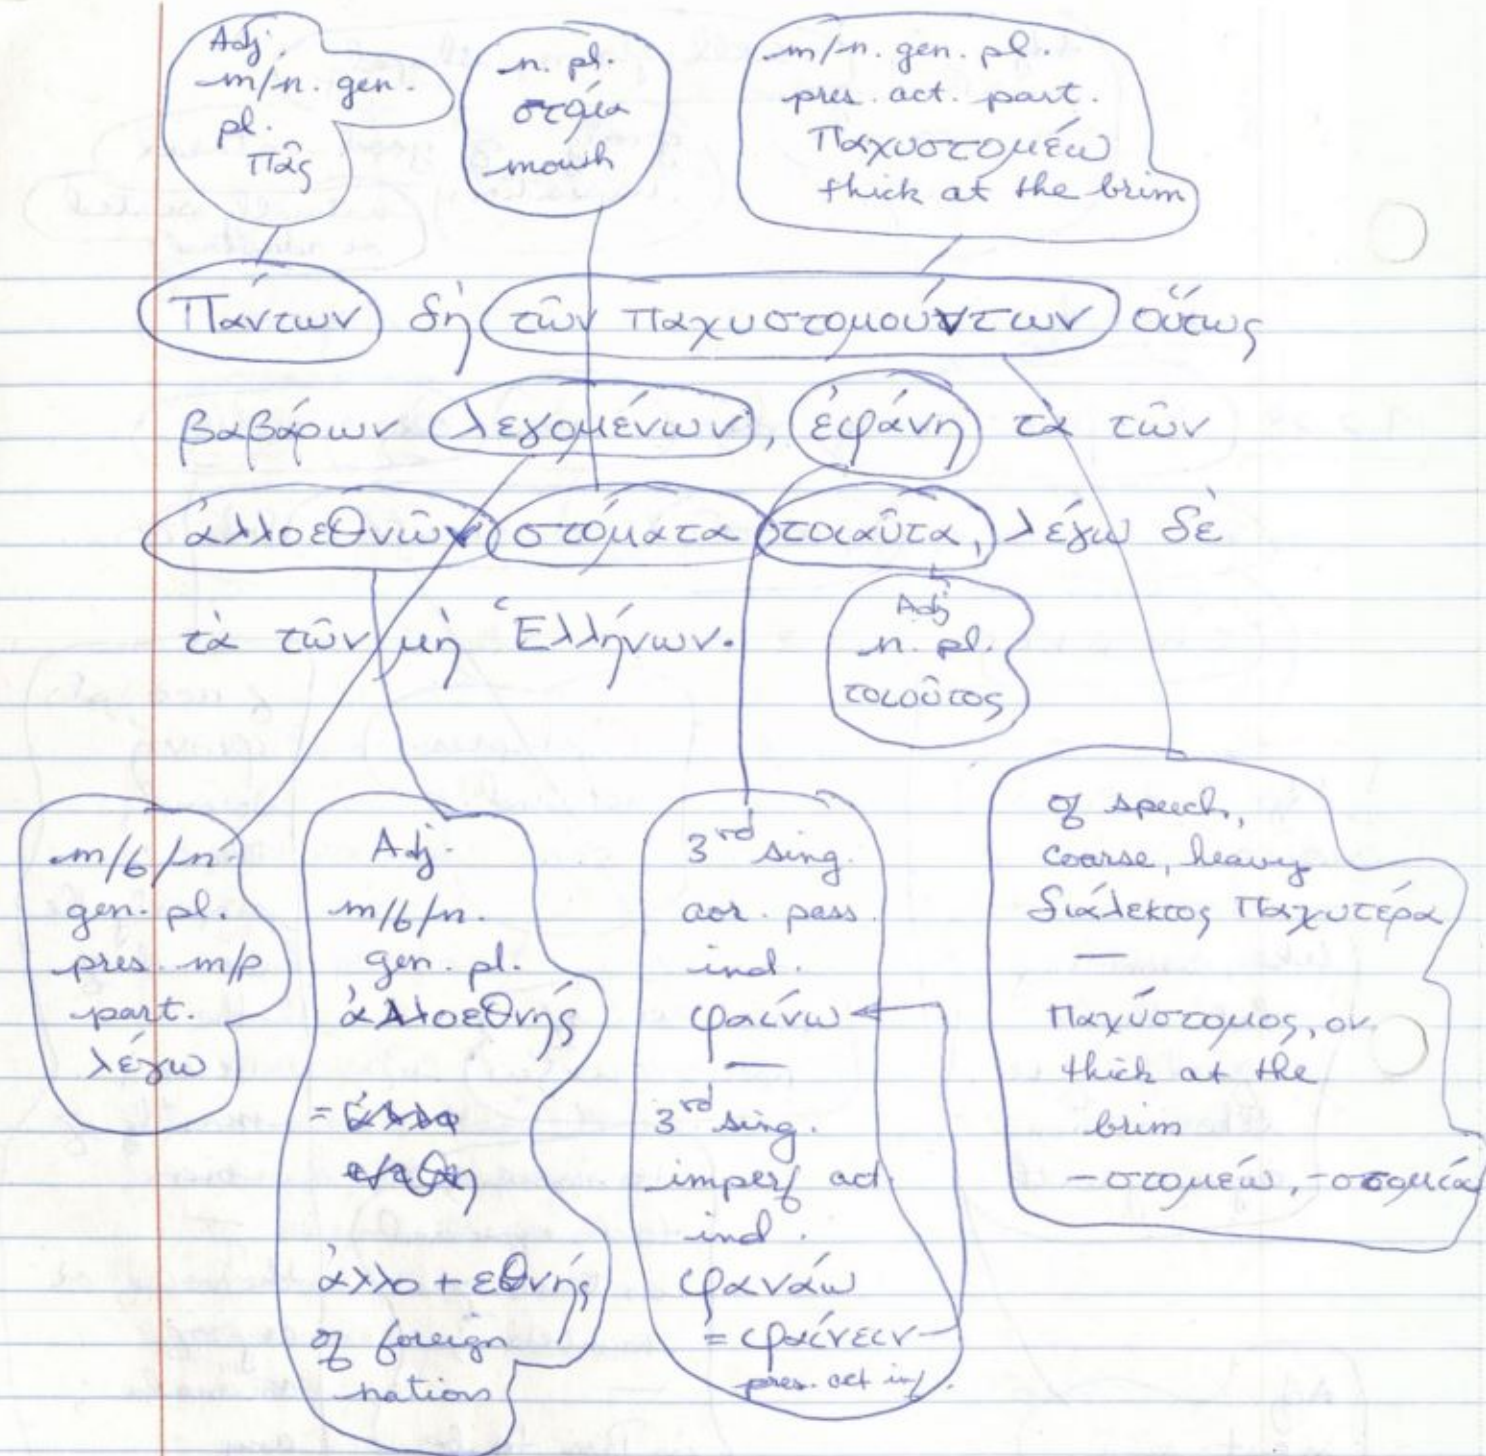 Adj.
m/n. gen.
pl.
πᾶς
n. pl.
στόμα
mouth
m/n. gen. pl.
pres. act. part.
παχυστομέω
thick at the brim
Πάντων δὴ τῶν παχυστομούντων οὕτως
βαβάρων λεγομένων, ἐφάνη τὰ τῶν
ἀλλοεθνῶν στόματα τοιαῦτα, λέγω δὲ
τὰ τῶν μὴ Ἑλλήνων.
Adj
n. pl.
τοιοῦτος
m/f/n.
gen. pl.
pres. m/p
part.
λέγω
Adj.
m/f/n.
gen. pl.
ἀλλοεθνής
=
ἀλλο + εθνής
of foreign
nations
3rd sing.
aor. pass.
ind.
φαίνω
—
3rd sing.
imperf act.
ind.
φανάω
= φαίνειν
pres. act inf.
of speech,
coarse, heavy
διάλεκτος παχυτέρα
—
παχύστομος, ον
thick at the
brim
-στομέω, -στομία